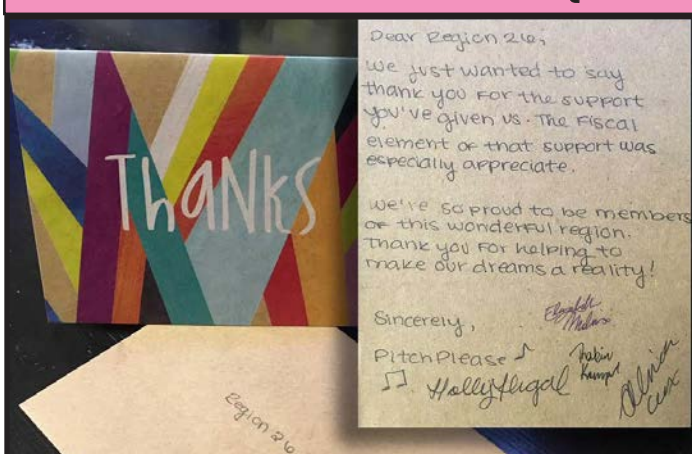 Thanks
Region 26
Dear Region 26,
We just wanted to say
thank you for the support
you've given us. The fiscal
element of that support was
especially appreciate.
We're so proud to be members
of this wonderful region.
Thank you for helping to
make our dreams a reality!
Sincerely,
Elizabeth
Pitch Please
Holly
Olivia